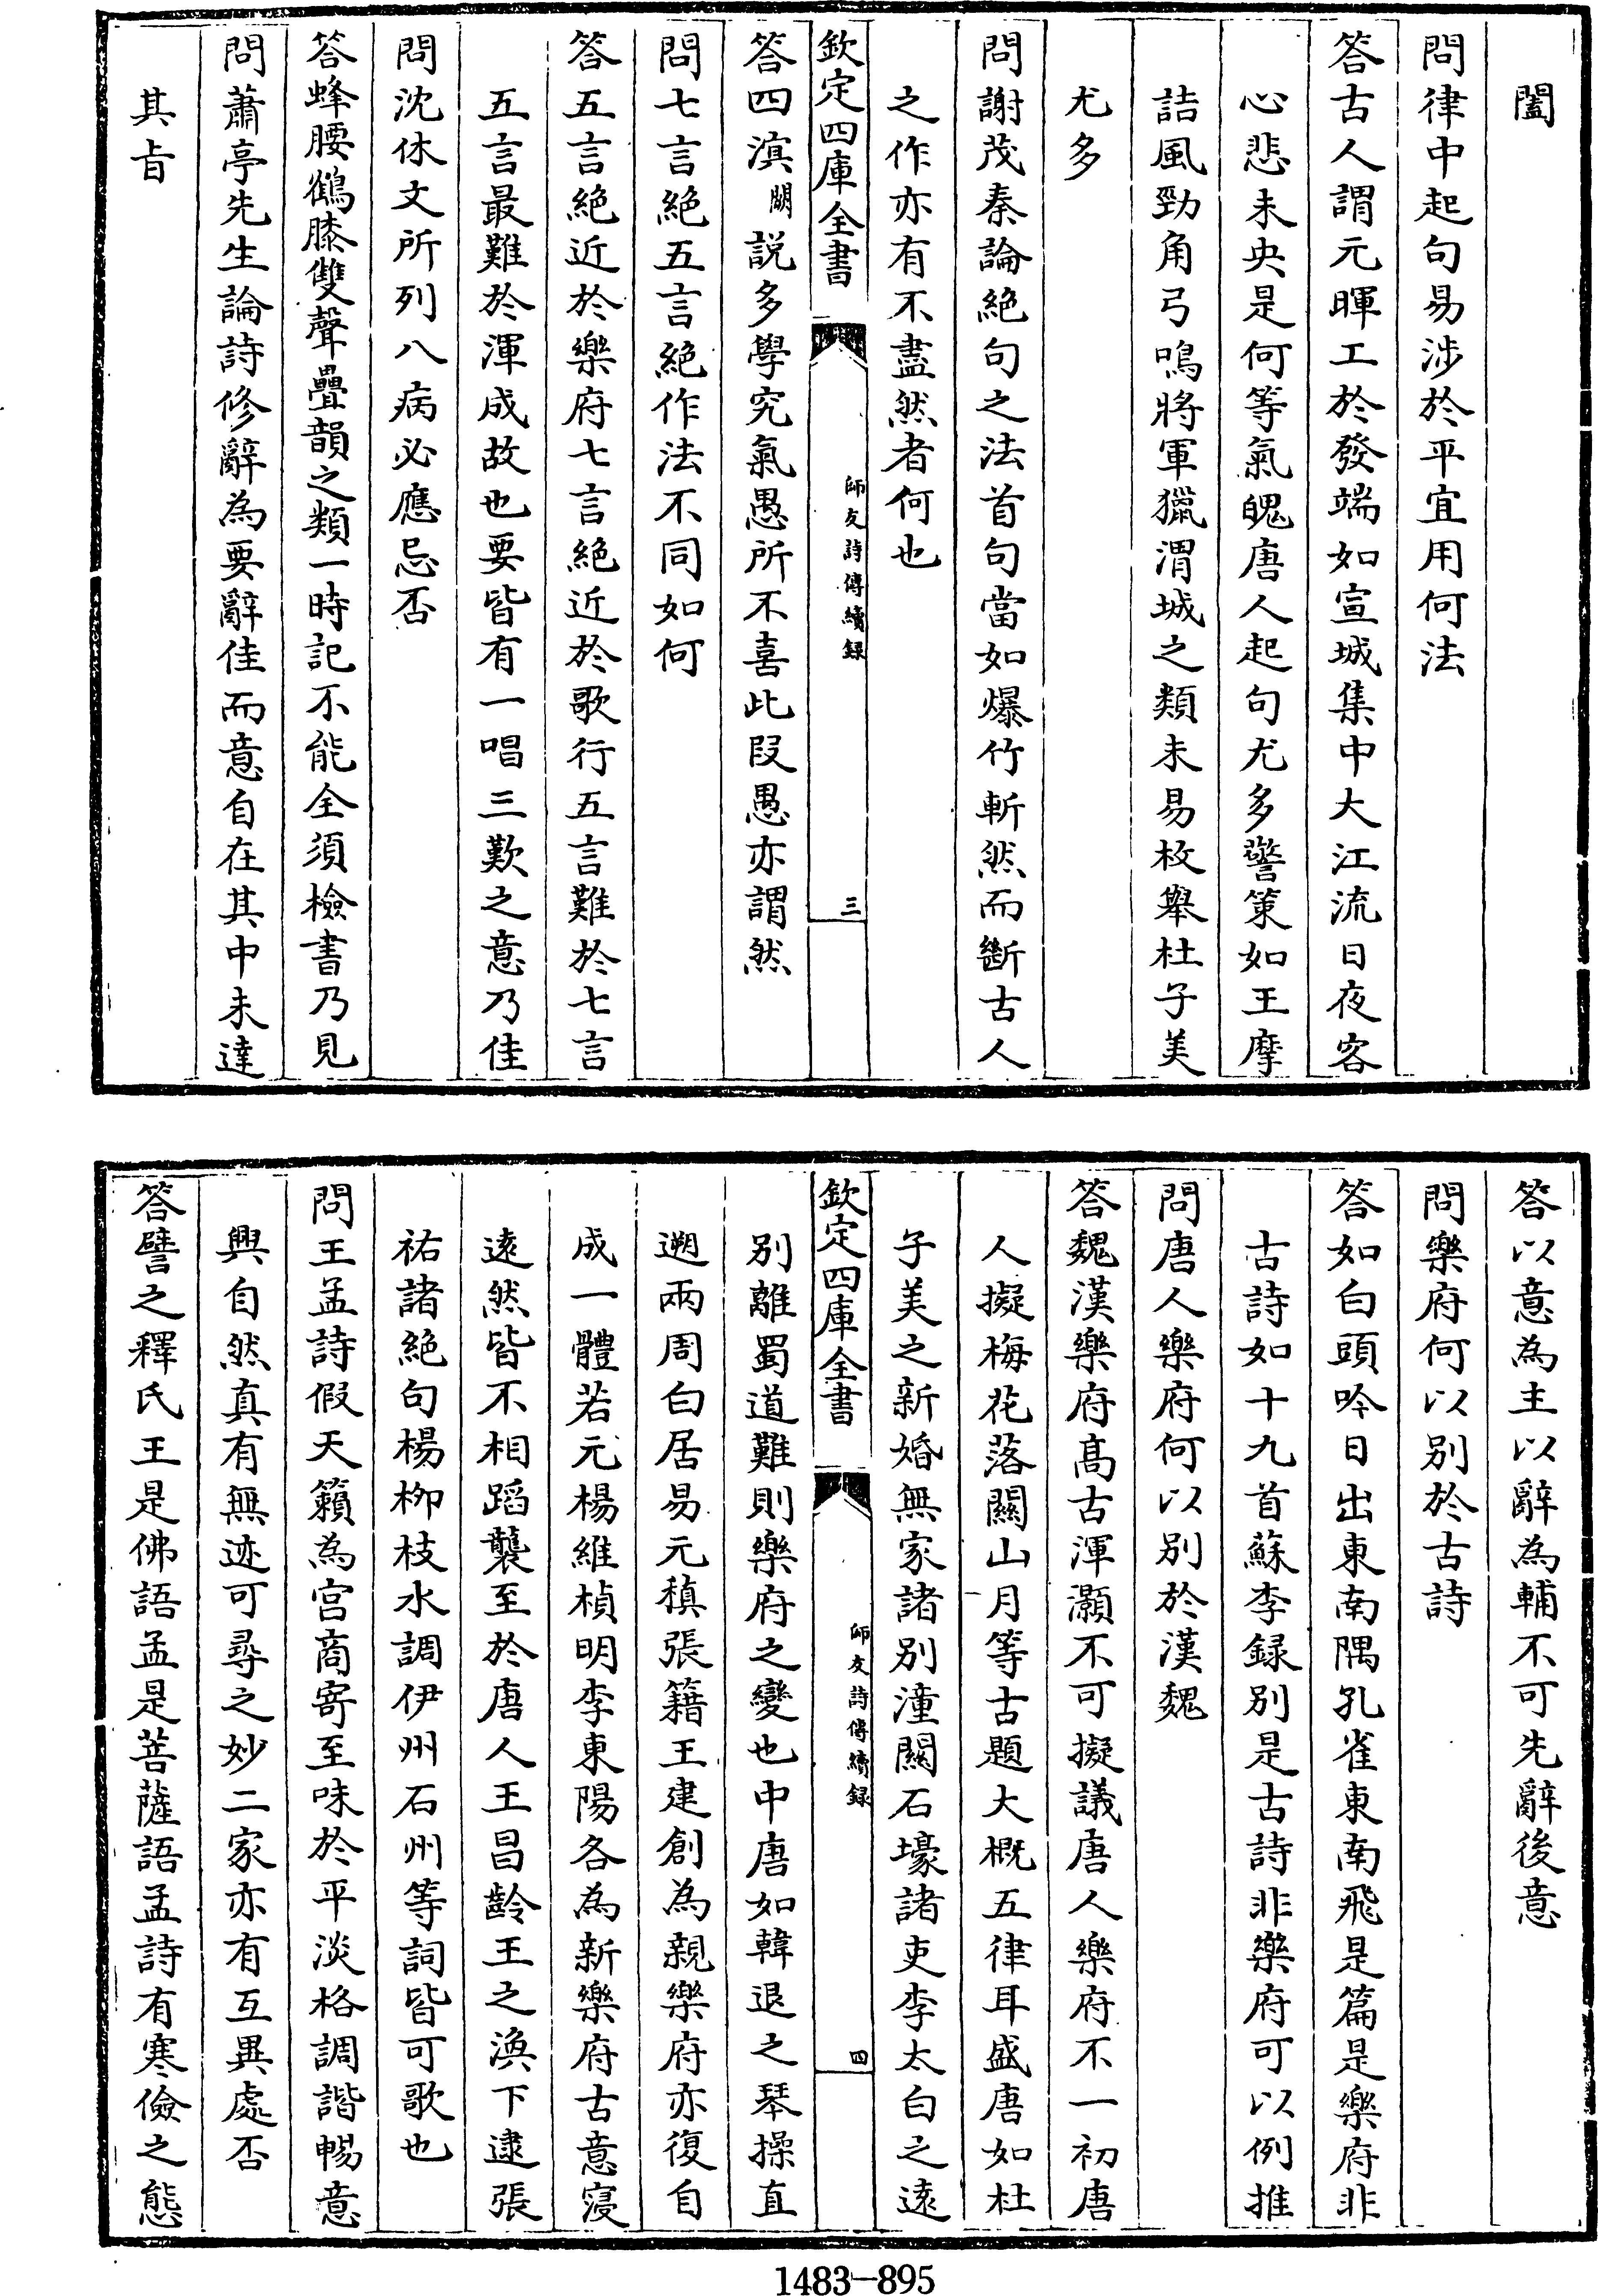 闔
問律中起句易涉於平宜用何法
答古人謂元暉工於發端如宣城集中大江流日夜客
心悲未央是何等氣魄唐人起句尤多警策如王摩
詰風勁角弓鳴將軍獵渭城之類未易枚舉杜子美
尤多
問謝茂秦論絶句之法首句當如爆竹斬然而斷古人
之作亦有不盡然者何也
欽定四庫全書
師友詩傳續録
三
答四溟闕説多學究氣愚所不喜此段愚亦謂然
問七言絶五言絶作法不同如何
答五言絶近於樂府七言絶近於歌行五言難於七言
五言最難於渾成故也要皆有一唱三歎之意乃佳
問沈休文所列八病必應忌否
答蜂腰鶴膝雙聲疊韻之類一時記不能全須檢書乃見
問蕭亭先生論詩修辭為要辭佳而意自在其中未達
其㫖
答以意為主以辭為輔不可先辭後意
問樂府何以别於古詩
答如白頭吟日出東南隅孔雀東南飛是篇是樂府非
古詩如十九首蘇李録别是古詩非樂府可以例推
問唐人樂府何以别於漢魏
答魏漢樂府髙古渾灝不可擬議唐人樂府不一初唐
人擬梅花落關山月等古題大概五律耳盛唐如杜
子美之新婚無家諸别潼關石壕諸吏李太白之逺
欽定四庫全書
師友詩傳續録
四
别離蜀道難則樂府之變也中唐如韓退之琴操直
遡兩周白居易元稹張籍王建創為親樂府亦復自
成一體若元楊維楨明李東陽各為新樂府古意寖
逺然皆不相蹈襲至於唐人王昌齡王之渙下逮張
祐諸絶句楊柳枝水調伊州石州等詞皆可歌也
問王孟詩假天籟為宫商寄至味於平淡格調諧暢意
興自然真有無迹可尋之妙二家亦有互異處否
答譬之釋氏王是佛語孟是菩薩語孟詩有寒儉之態
1483-895